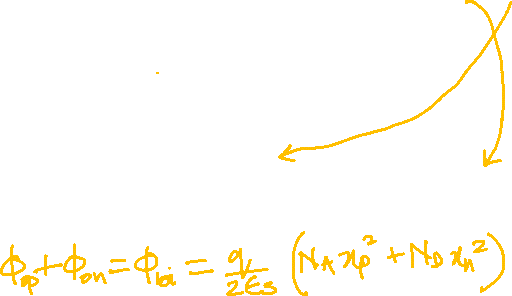 ϕop + ϕon = ϕbi = q/2εs (NA xp² + ND xn²)